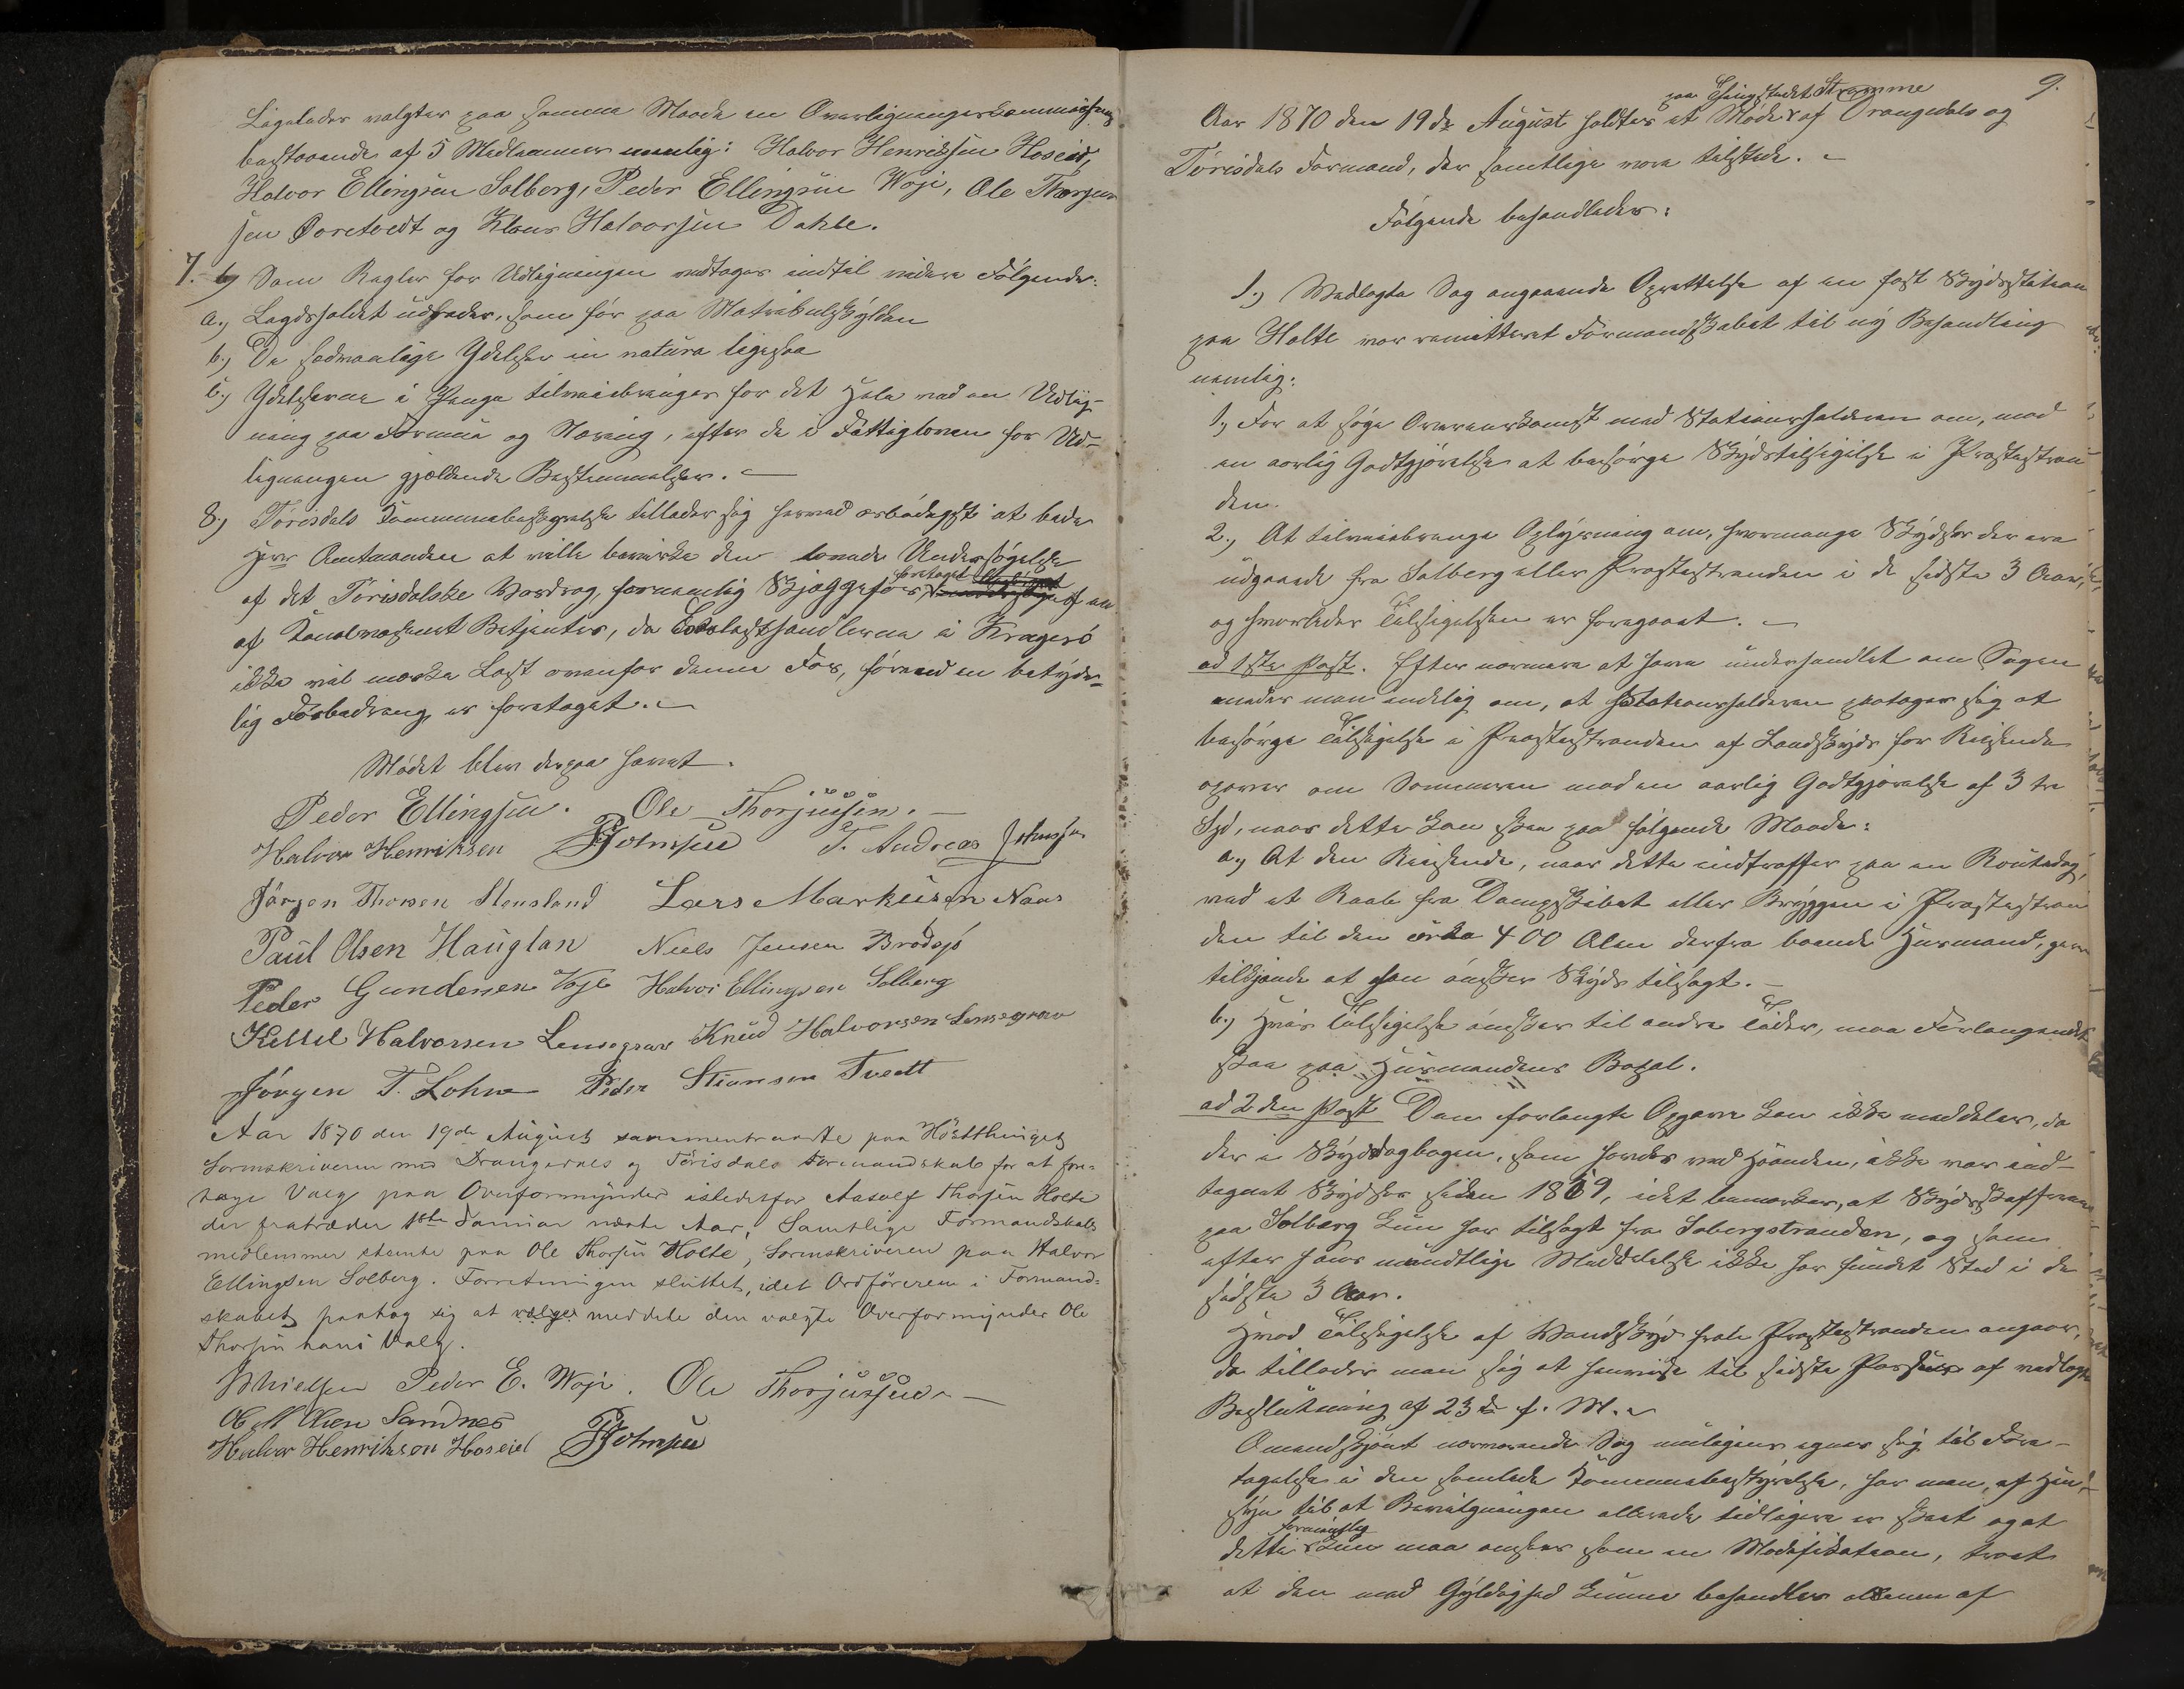 Ligeledes valgtes paa samme Maade en Overligningskommission
bestaaende af 5 Medlemmer nemlig: Halvor Henriksen Hoseid,
Halvor Ellingsen Solberg, Peder Ellingsen Woje, Ole Thorjus-
sen Øoretvedt og Klaus Halvorsen Dahle.
7. b) Som Regler for Udligningen vedtages indtil videre Følgende:
a.) Lægdsholdet udredes, som før paa Matrikulskylden
b.) De sedvanlige Ydelser in natura ligesaa
c.) Ydelserne i Penge tilveiebringes for det Hele ved en Udlig-
ning paa Formue og Næring, efter de i Fattigloven for Ud-
ligningen gjældende Bestemmelser. —
8.) Tørisdals Kommunebestyrelse tillader sig herved ærbødigst at bede
Herr Amtmanden at ville bevirke den lovede Undersøgelse
af det Tørisdalske Vasdrag, fornemlig Skjeggefos, foretaget af en
af Kanalvæsenet Betjenter, da Trælasthandlerne i Kragerø
ikke vil merke Last ovenfor denne Fos, førend en betyde-
lig Forbedring er foretaget. —
Mødet blev derpaa hævet.
Peder Ellingsen. Ole Thorjussen. —
Halvor Henriksen T. Andreas Johnsen
Jørgen Thorsen Stensland Lars Markusen Naas
Paul Olsen Hauglan Niels Jensen Brødsjø
Peder Gundersen Voje Halvor Ellingsen Solberg
Kettel Halvorsen Lensegrav Knud Halvorsen Lensegrav
Jørgen T. Lohne Peder Stiansen Tvedt
Aar 1870 den 19de August sammentraadte paa Høstthinget
Sorenskriveren med Drangedals og Tørisdals Formandskab for at fore-
tage Valg paa Overformynder istedetfor Aasolf Thorsen Holte
der fratræder 1ste Januar næste Aar, Samtlige Formandskabs
medlemmer stemte paa Ole Thorsen Holte, Sorenskriveren paa Halvor
Ellingsen Solberg. Forretningen sluttet, idet Ordføreren i Formand-
skabet paatog sig at vælges meddele den valgte Overformynder Ole
Thorsen hans Valg.
Peder E. Woje. Ole Thorjussen —
Ole M Olsen Sandnes
Halvor Henriksen Hoseid
9.
paa Thingstedet Strømme
Aar 1870 den 19de August holdtes et Møde af Drangedals og
Tørisdals Formænd, der samtlige vare tilstede. —
Følgende behandledes:
1.) Vedlagte Sag angaaende Oprettelse af en fast Skydsstation
paa Holte var remitteret Formandskabet til ny Behandling
nemlig:
1.) For at søge Overenskomst med Stationsholderen om, mod
en aarlig Godtgjørelse at besørge Skydstilsigelse i Prestestran
den.
2.) At tilveiebringe Oplysning om, hvormange Skydser der ere
udgaaede fra Solberg eller Prestestranden i de sidste 3 Aar,
og hvorledes Tilsigelsen er foregaaet. —
ad 1ste Post. Efter nærmere at have underhandlet om Sagen
enedes man endelig om, at Stationsholderen paatager sig at
besørge Tilsigelse i Prestestranden af Landskyds for Reisende
opover om Sommeren mod en aarlig Godtgjørelse af 3 tre
Spd, naar dette kan ske paa følgende Maade:
a.) At den Reisende, naar dette indtræffer paa en Routedag,
ved et Raab fra Dampskibet eller Bryggen i Prestestran
den til den cirka 400 Alen derfra boende Husmand, giver
tilkjende at han ønsker Skyds tilsagt. —
b.) Hvis Tilsigelse ønskes til andre Tider, maa Forlangendet
ske paa Husmandens Bopæl.
ad 2den Post Den forlangte Opgave kan ikke meddeles, da
der i Skydsdagbogen, som havdes ved Haanden, ikke var ind-
tegnet Skydser siden 1869, idet bemærkes, at Skydsskafferen
paa Solberg kun har tilsagt fra Sobergstranden, og som
efter hans mundtlige Meddelelse ikke har fundet Sted i de
sidste 3 Aar.
Hvad Tilsigelse af Vandskyds fra Prestestranden angaar,
da tillader man sig at henvise til sidste Passus af vedlagte
Beslutning af 23de f. M. —
Omendskjønt nærværende Sag muligens egner sig til Fore-
tagelse i den samlede Kommunebestyrelse, har man, af Hen-
syn til at Bevilgningen allerede tidligere er skeet og at
dette formentlig kun maa ansees som en Modifikation, troet
at den med Gyldighed kunne behandles alene af